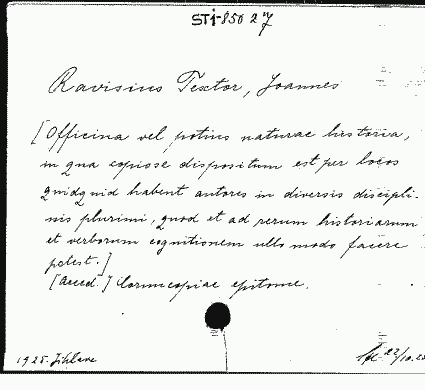 STi-850 27
Ravisius Textor, Joannes
[Officina vel potius naturae historia,
in qua copiose dispositum est per locos
quidquid habent autores in diversis discipli-
nis plurimi, quod et ad rerum historiarum
et verborum cognitionem ullo modo facere
potest.]
[Acced.] Cornucopiae epitome.
1925. Jihlava 22/10.25